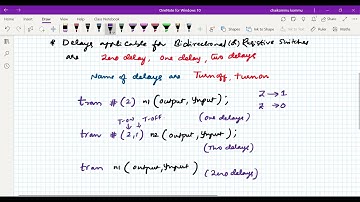 OneNote for Windows 10
Home Insert Draw View Help Class Notebook
# Delays applicable for Bidirectional (&) Resistive Switches
are Zero delay, one delay, Two delays
Name of delays are Turnoff, turnon
tran # (2) n1 (output, Input); Z → 1
(one delays) Z → 0
T-on T-off
tran # (2,1) n2 (output, Input);
(Two delays)
tran n1 (output, Input) (Zero delays)